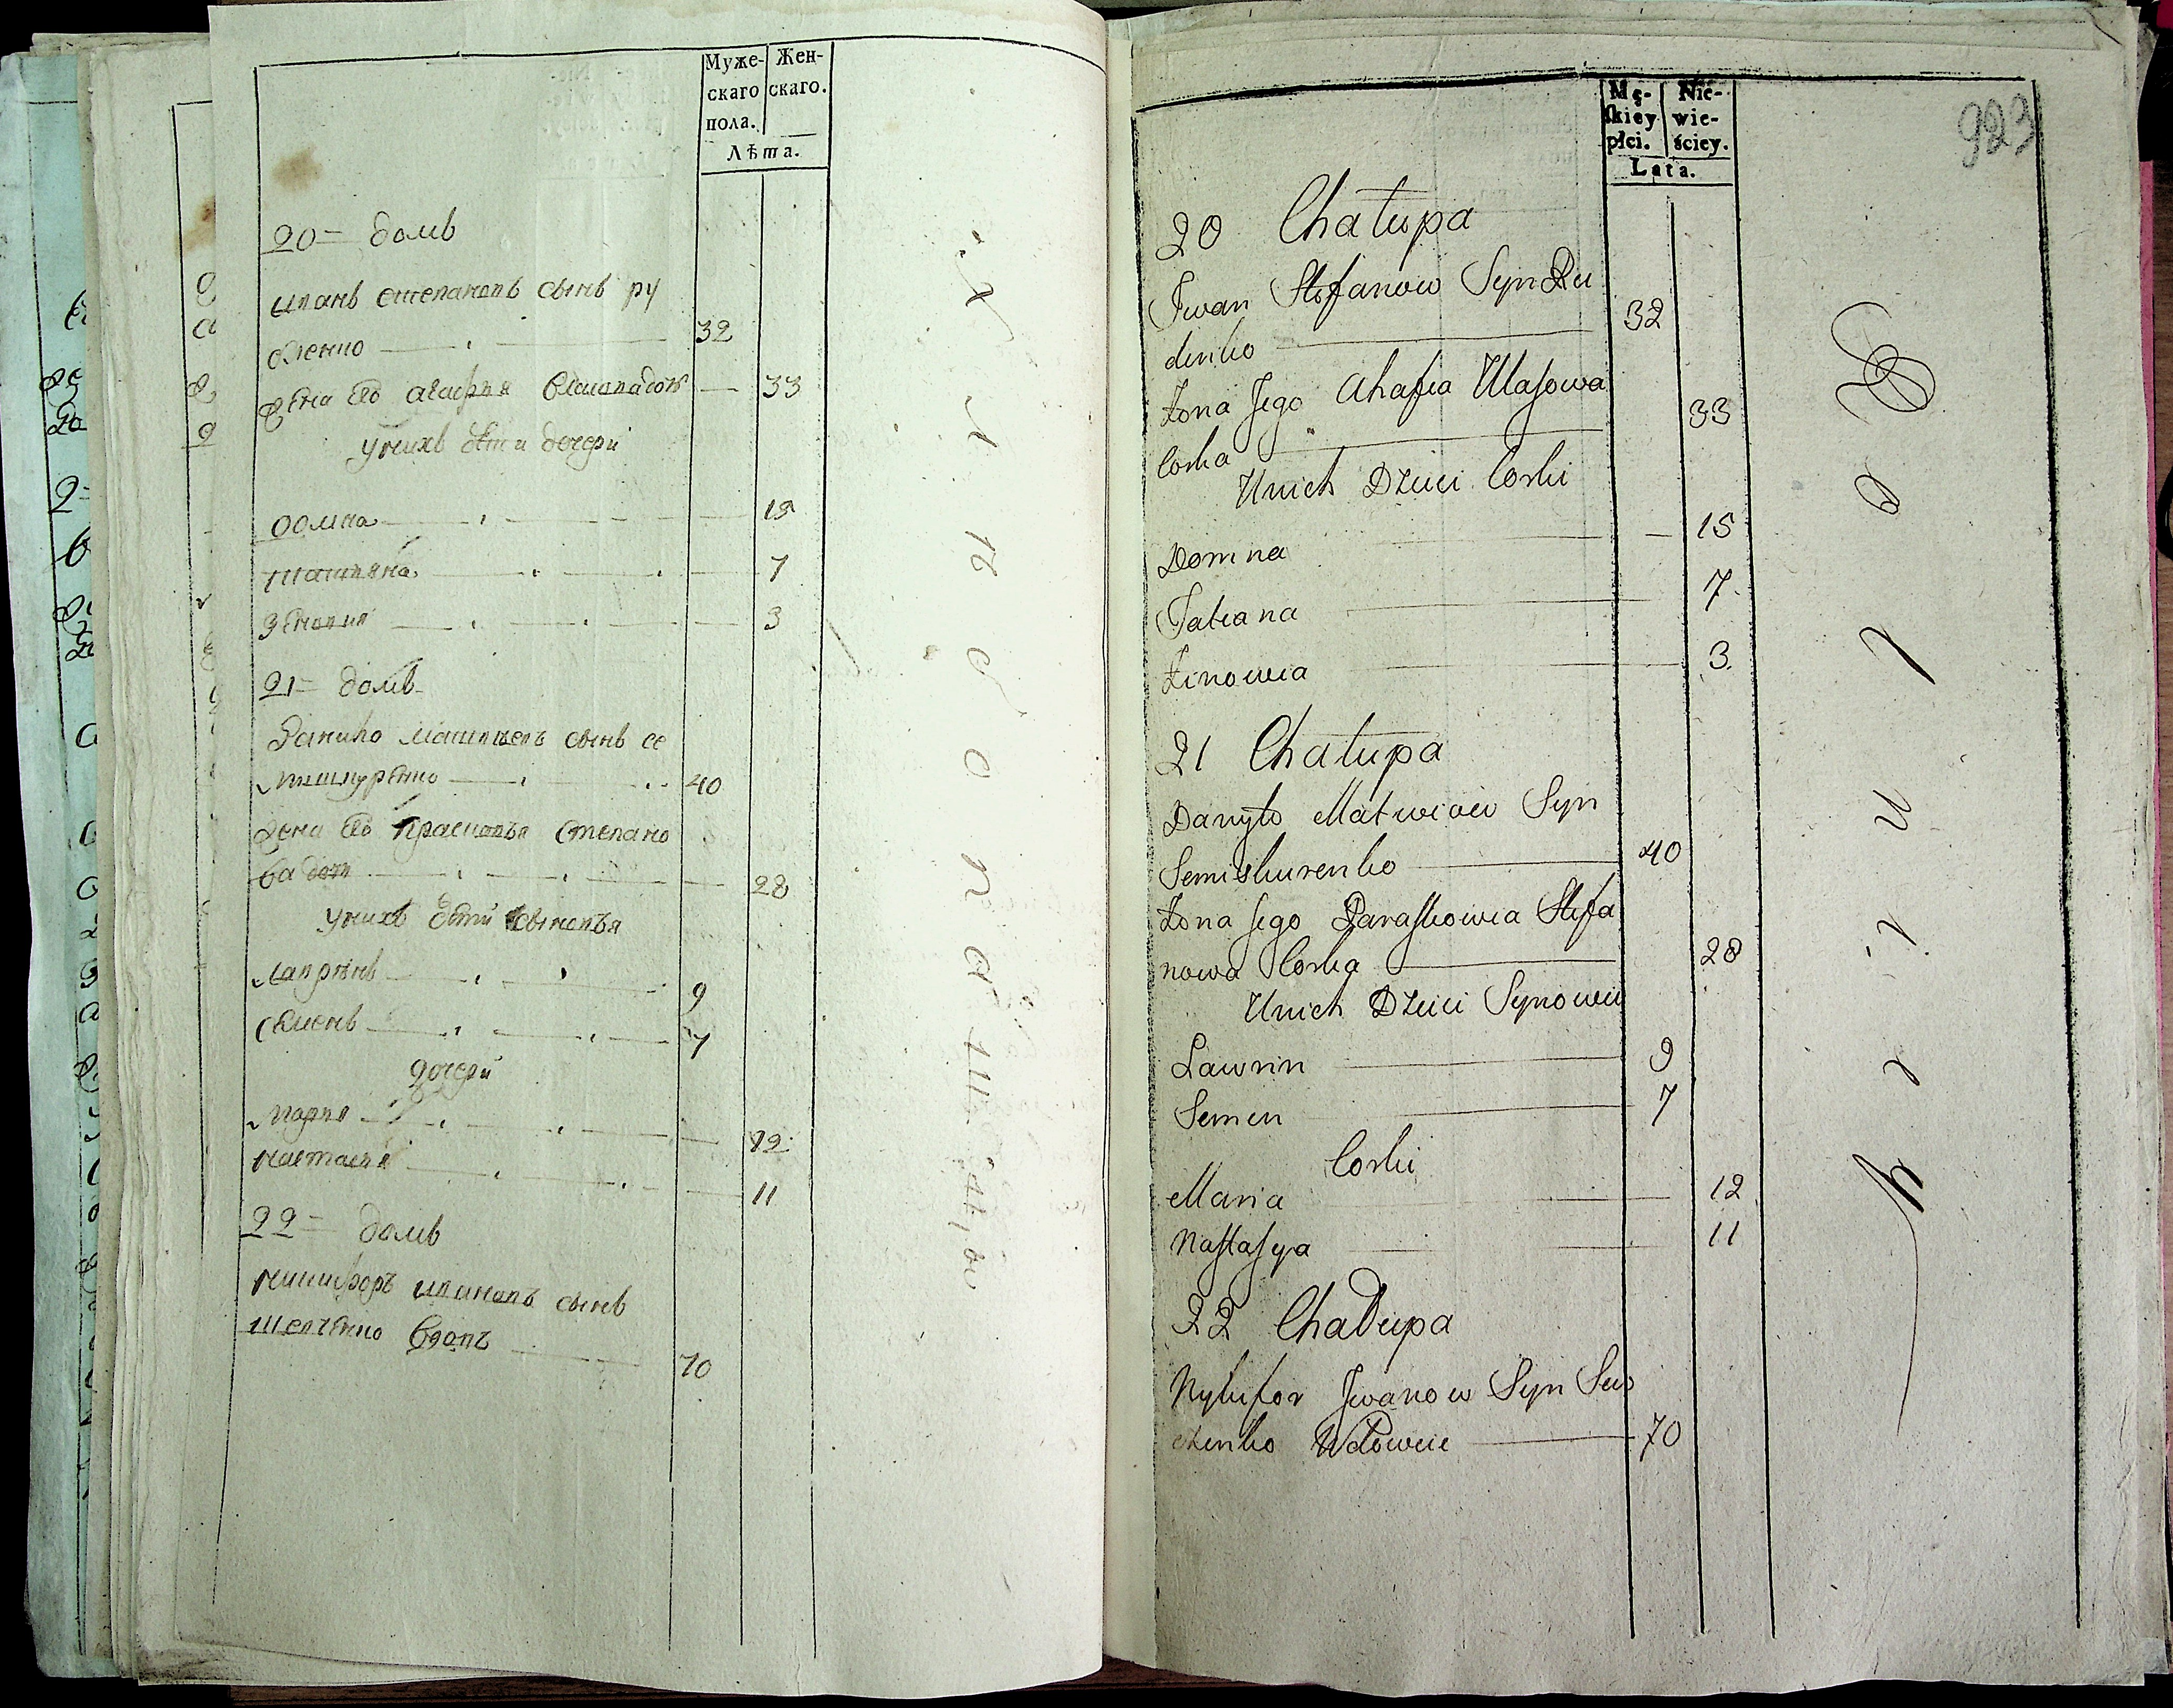 Муже-
скаго
пола.
Жен-
скаго.
Лѣта.
20 = домъ
иванъ степановъ сынъ ру
денко 32
жена его агафия власова дочь 33
у нихъ дѣти дочери
домна 15
татияна 7
зеновия 3
21 = домъ
Данило матвѣевъ сынъ се
мишкуренко 40
жена его Прасковья Степано
ва дочь 28
у нихъ дѣти сыновья
лавринъ 9
семенъ 7
дочери
мария 12
настасия 11
22 = домъ
никифоръ ивановъ сынъ
шевченко вдовъ 70
Mę-
skiey
płci.
Nie-
wie-
ściey.
Lata.
923
20 Chałupa
Jwan Stefanow Syn Ru
denko 32
Żona Jego Ahafia Ułasowa 33
Corka
Unich Dzieci Corki
Domna 15
Tatiana 7
Zinowia 3
21 Chałupa
Danyło Matwiow Syn
Semiskurenko 40
Żona Jego Paraskowia Stefa
nowa Corka 28
Unich Dzieci Synowie
Lawrin 9
Semen 7
Corki
Maria 12
Nastasya 11
22 Chałupa
Nykifor Jwanow Syn Sew
czenko Wdowiec 70